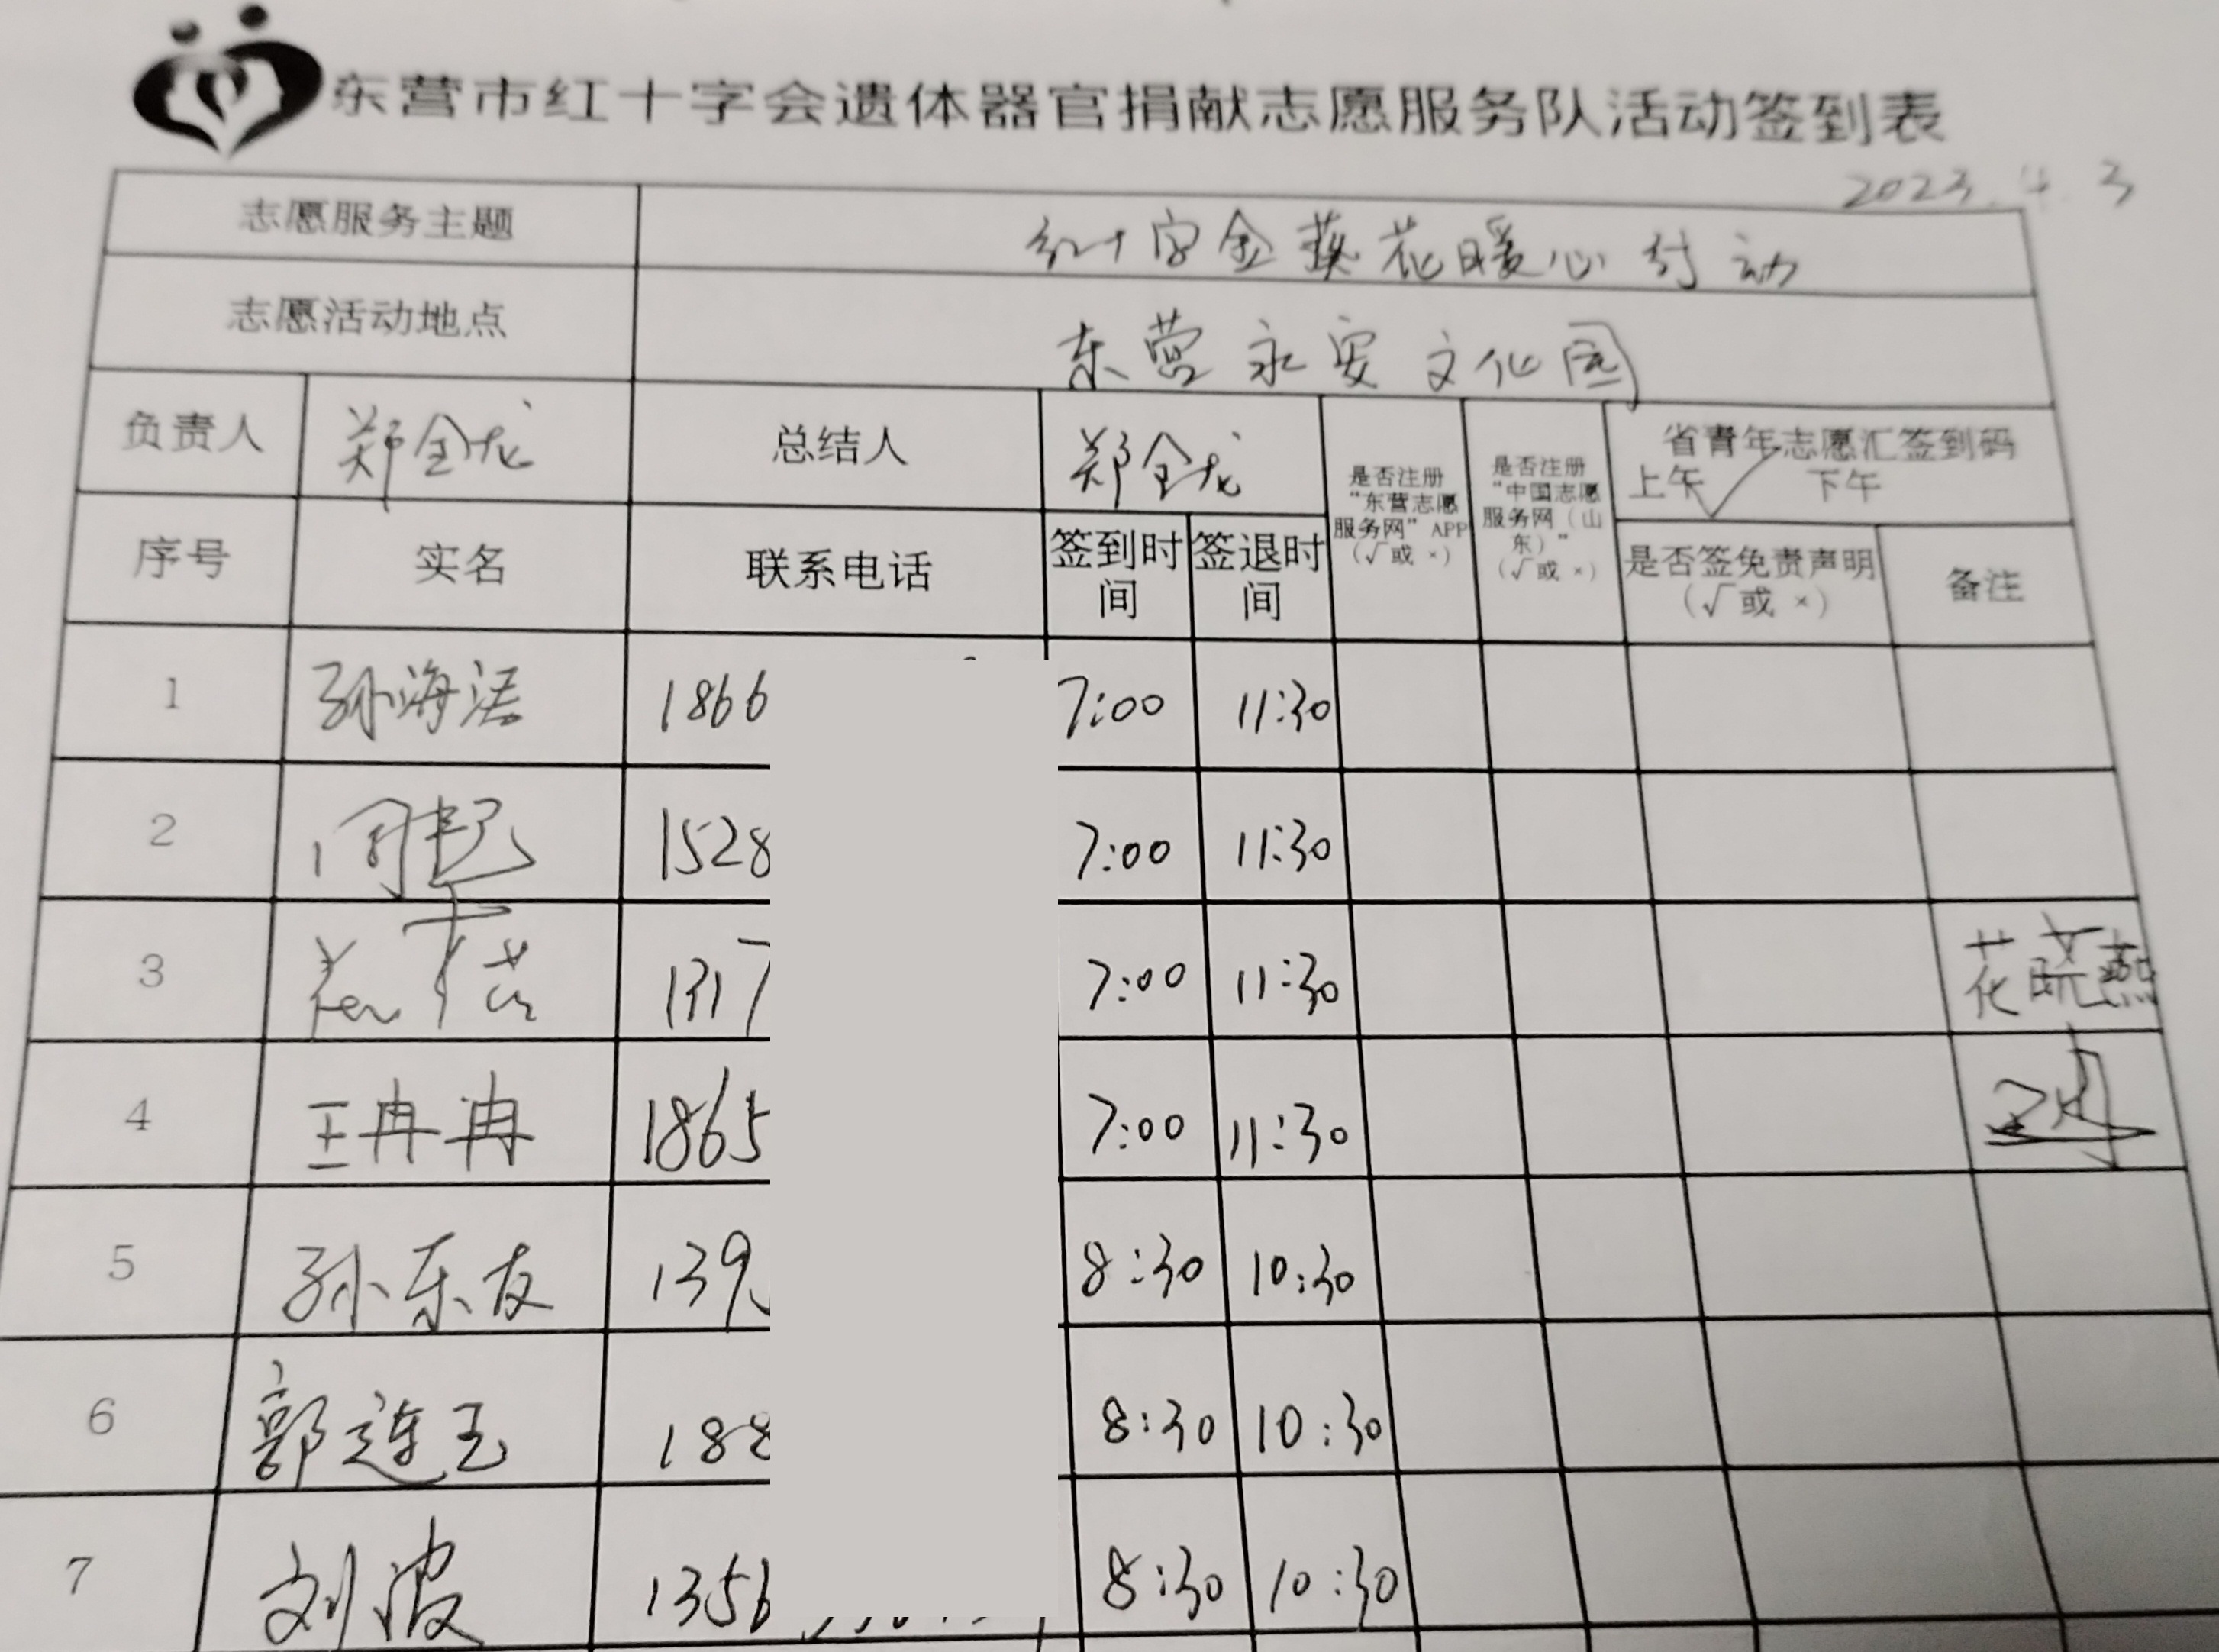 东营市红十字会遗体器官捐献志愿服务队活动签到表
2023.4.3
志愿服务主题 红十字金葵花暖心行动
志愿活动地点 东营永安文化园
负责人 郑全龙 总结人 郑全龙 是否注册“东营志愿服务网”APP（√或 ×） 是否注册“中国志愿服务网（山东）”（√或 ×） 省青年志愿汇签到码 上午√ 下午
序号 实名 联系电话 签到时间 签退时间 是否签免责声明（√或 ×） 备注
1 孙海洁 1866 7:00 11:30
2 1528 7:00 11:30
3 7:00 11:30 花晓燕
4 王冉冉 1865 7:00 11:30
5 孙东友 139 8:30 10:30
6 郭连玉 188 8:30 10:30
7 刘波 1356 8:30 10:30